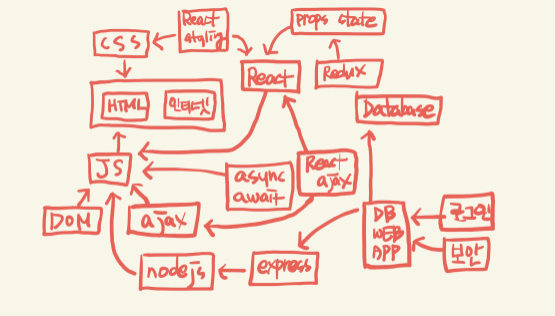 React
styling
props state
CSS
React
Redux
HTML
인터넷
Database
JS
async
await
React
ajax
DOM
ajax
DB
WEB
APP
로그인
보안
nodejs
express